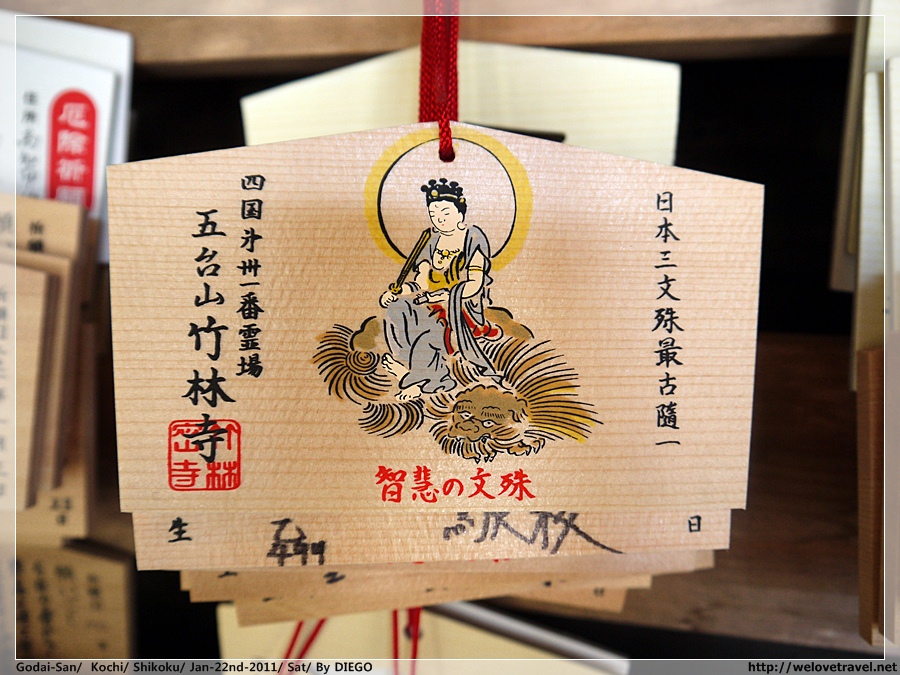 日本三文殊最古随一
四国㐧卅一番霊場
五台山竹林寺
智慧の文殊
生
日
厄除祈願
Godai-San/ Kochi/ Shikoku/ Jan-22nd-2011/ Sat/ By DIEGO
http://welovetravel.net